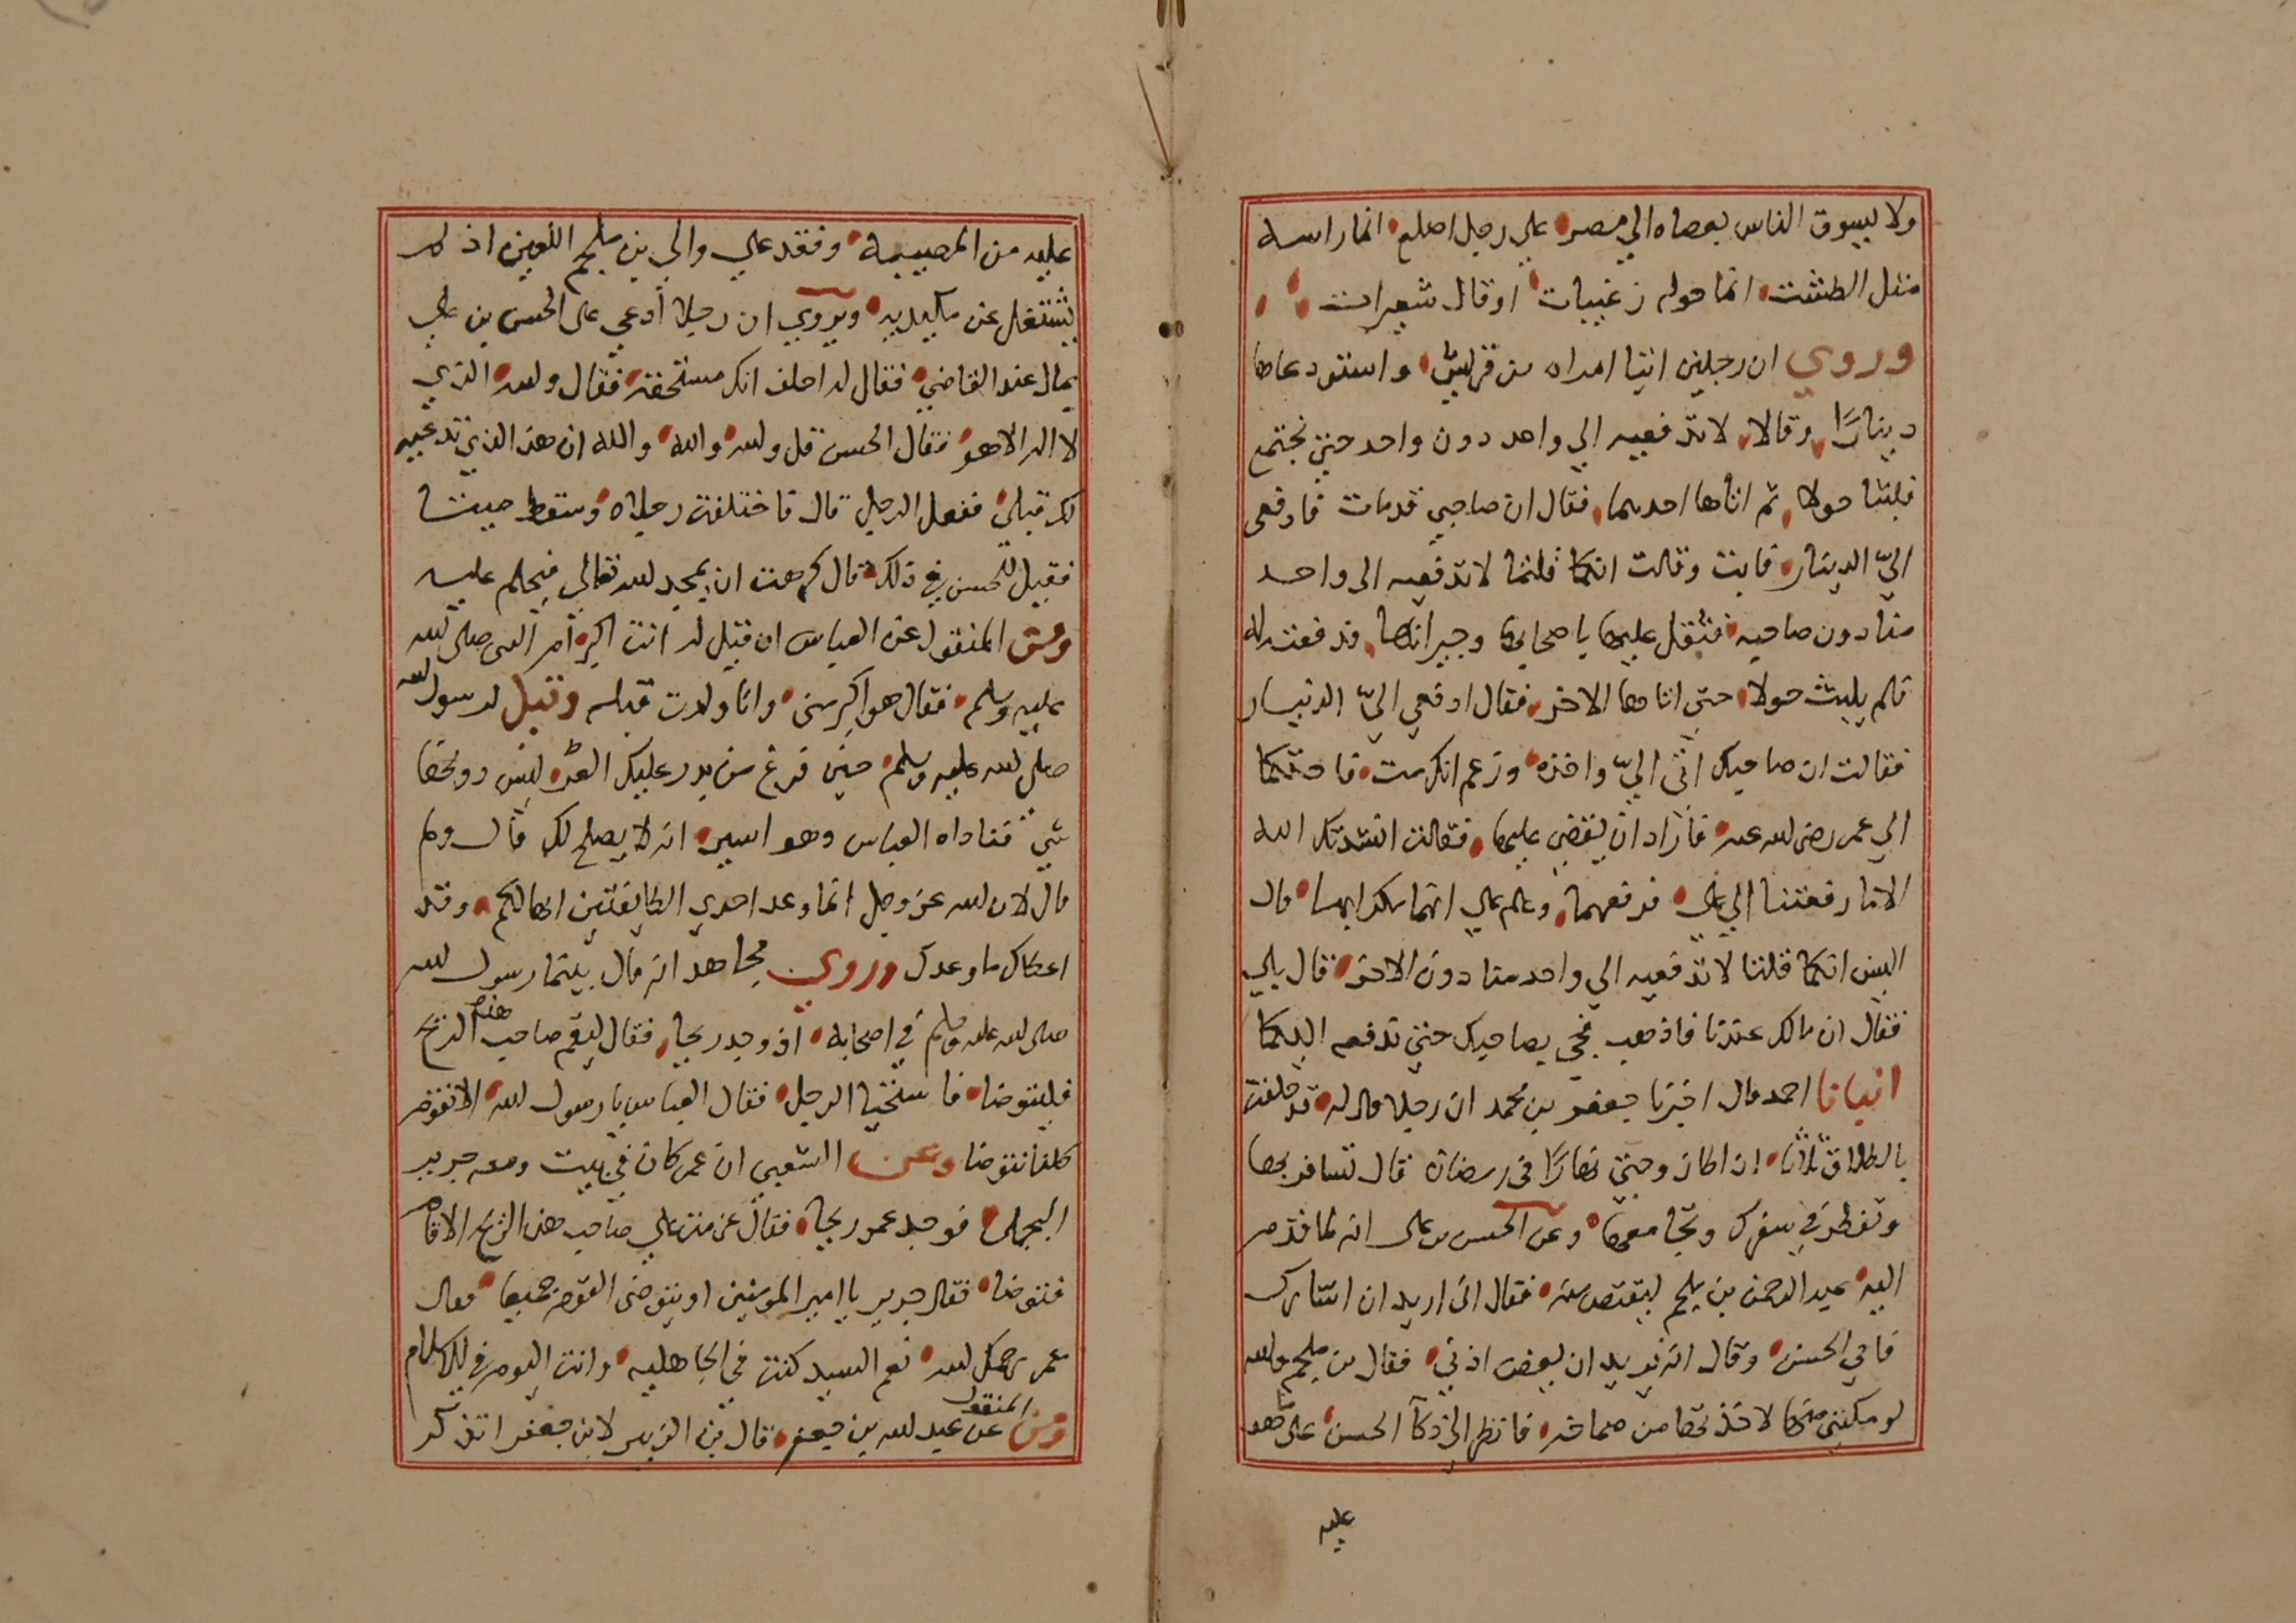 ولا يسوق الناس بعصاه الي مصر على رجل اصلع انما راسه
مثل الطشت انما حوله زغيبات او قال شعيرات
وروي ان رجلين اتيا امراه من قريش واستودعاها
دينارًا وقالا لا تدفعيه الي واحد دون واحد حتي نجتمع
فلبثا حولا ثم اتاها احدهما فقال ان صاحبي قد مات فادفعي
اليّ الدينار فابت وقالت انكما قلتما لا تدفعيه الى واحد
منا دون صاحبه فثقل عليها باصحابها وجيرانها فدفعته له
فلم يلبث حولا حتى اتاها الاخر فقال ادفعي اليّ الدنيار
فقالت ان صاحبك اتى اليّ واخذه وزعم انك مت فاحتكما
الي عمر رضى لله عنه فاراد ان يقضي عليها فقالت انشدتك الله
الا ما رفعتنا الي علي فرفعهما وعلم علي انهما مكرا بها قال
اليس انكما قلتما لا تدفعيه الي واحد منا دون الاخر قال بلي
فقال ان مالك عندنا فاذهب فجي بصاحبك حتي تدفعه اليكما
انبانا احمد قال اخبرنا جعفر بن محمد ان رجلا قال له قد حلفت
بالطلاق ثلاثا ان اطا زوجتي نهارًا في رمضان قال تسافر بها
وتفطر في سفرك وتجامعها وعن الحسن بن على انه لما قدم
اليه عبد الرحمن بن ملجم ليقتص منه فقال انى اريد ان اشارك
فابي الحسن وقال انه يريد ان يعض اذني فقال بن ملجم ولله
لو مكنني منها لاخذتها من صماخه فانظر الي ذكآ الحسن على ما هو
عليه
عليه من المصيبة وفقد علي والي بن ملجم اللعين اذ لم
يشتغل عن مكيدته ويروي ان رجلا أدعي على الحسن بن على
بمال عند القاضي فقال له احلف انك مستحقه فقال ولله الذي
لا اله الا هو فقال الحسن قل ولله والله والله ان هذا الذي تدعيه
لك قبلي ففعل الرجل قال فاختلفت رجلاه وسقط ميتا
فقيل للحسن في ذلك قال كرهت ان يمجد لله تعالي فيحلم عليه
ومن المنقول عن العباس ان قيل له انت اكبر أم النبى صلى لله
عليه وسلم فقال هو اكبر منى وانا ولدت قبله وقيل لرسول لله
صلى لله عليه وسلم حين فرغ من بدر عليك العير ليس دونها
شي فناداه العباس وهو اسير انه لا يصلح لك قال ولم
قال لان لله عز وجل انما وعد احدي الطايفتين انها لكم وقد
اعطاك ما وعدك وروي مجاهد انه قال بينما رسول لله
صلى لله عليه وسلم في اصحابه اذ وجد ريحا فقال ليقم صاحب هذه الريح
فليتوضا فاستحيا الرجل فقال العباس يا رسول لله الا نقوم
كلنا نتوضا وعن الشعبي ان عمر كان في بيت ومعه جرير
البجلى فوجد عمر ريحا فقال عزمت علي صاحب هذه الريح الا قام
فتوضا فقال جرير يا امير المومنين او يتوضى القوم جميعا فقال
عمر رحمك لله نعم السيد كنت في الجاهليه وانت اليوم في الاسلام
ومن المنقول عن عبد لله بن جعفر قال بن الزبير لابن جعفر اتذكر